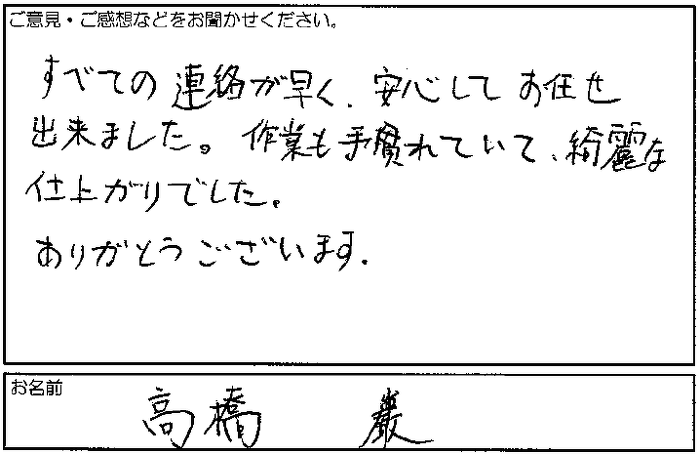 ご意見・ご感想などをお聞かせください。
すべての連絡が早く、安心してお任せ
出来ました。作業も手慣れていて、綺麗な
仕上がりでした。
ありがとうございます。
お名前
高橋 巌